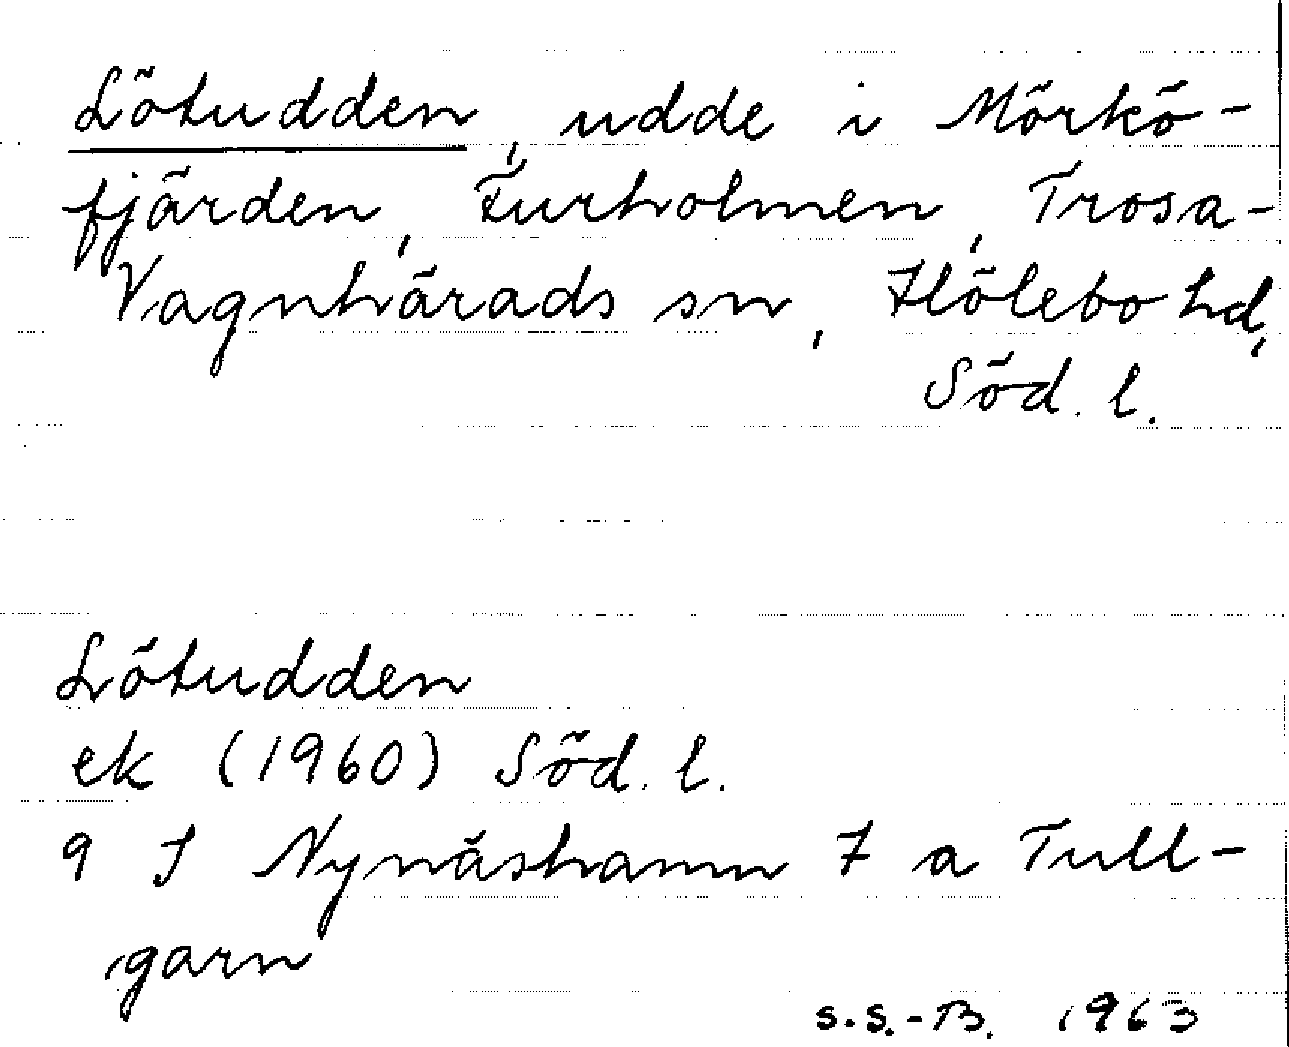 Lötudden, udde i Mörkö-
fjärden, Furholmen, Trosa-
Vagnhärads sn, Hölebo hd,
Söd. l.
Lötudden
ek (1960) Söd. l.
9 I Nynäshamn 7 a Tull-
garn
S.S.-B. 1963